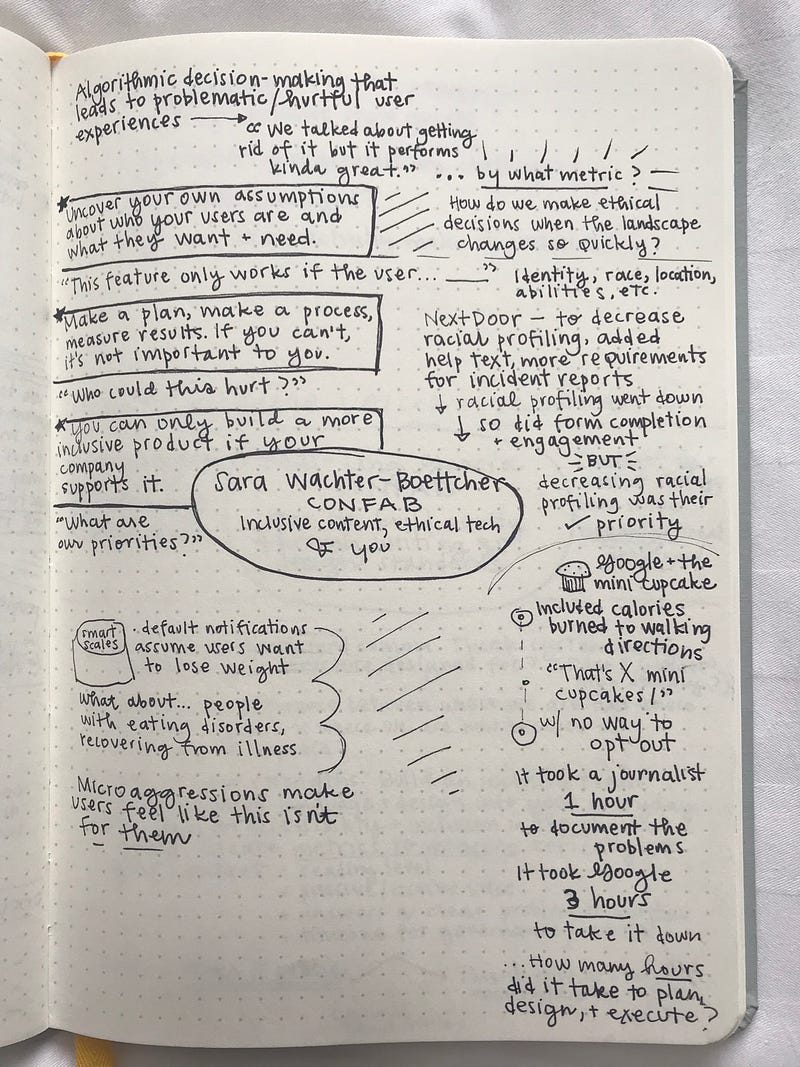 Algorithmic decision-making that
leads to problematic/hurtful user
experiences →
"We talked about getting
rid of it but it performs
kinda great." ... by what metric?
★Uncover your own assumptions
about who your users are and
what they want + need.
How do we make ethical
decisions when the landscape
changes so quickly?
"This feature only works if the user... ___"
Identity, race, location,
abilities, etc.
★Make a plan, make a process,
measure results. If you can't,
it's not important to you.
"Who could this hurt?"
★You can only build a more
inclusive product if your
company
supports it.
"What are
our priorities?"
NextDoor — to decrease
racial profiling, added
help text, more requirements
for incident reports
↓ racial profiling went down
↓ so did form completion
+ engagement
BUT
decreasing racial
profiling was their
✓ priority
Sara Wachter-Boettcher
CONFAB
Inclusive content, ethical tech
& you
smart
scales
· default notifications
assume users want
to lose weight
what about... people
with eating disorders,
recovering from illness
Microaggressions make
users feel like this isn't
for them
Google + the
mini cupcake
Included calories
burned to walking
directions
"That's X mini
cupcakes!"
w/ no way to
opt out
It took a journalist
1 hour
to document the
problems
It took Google
3 hours
to take it down
...How many hours
did it take to plan,
design, + execute?